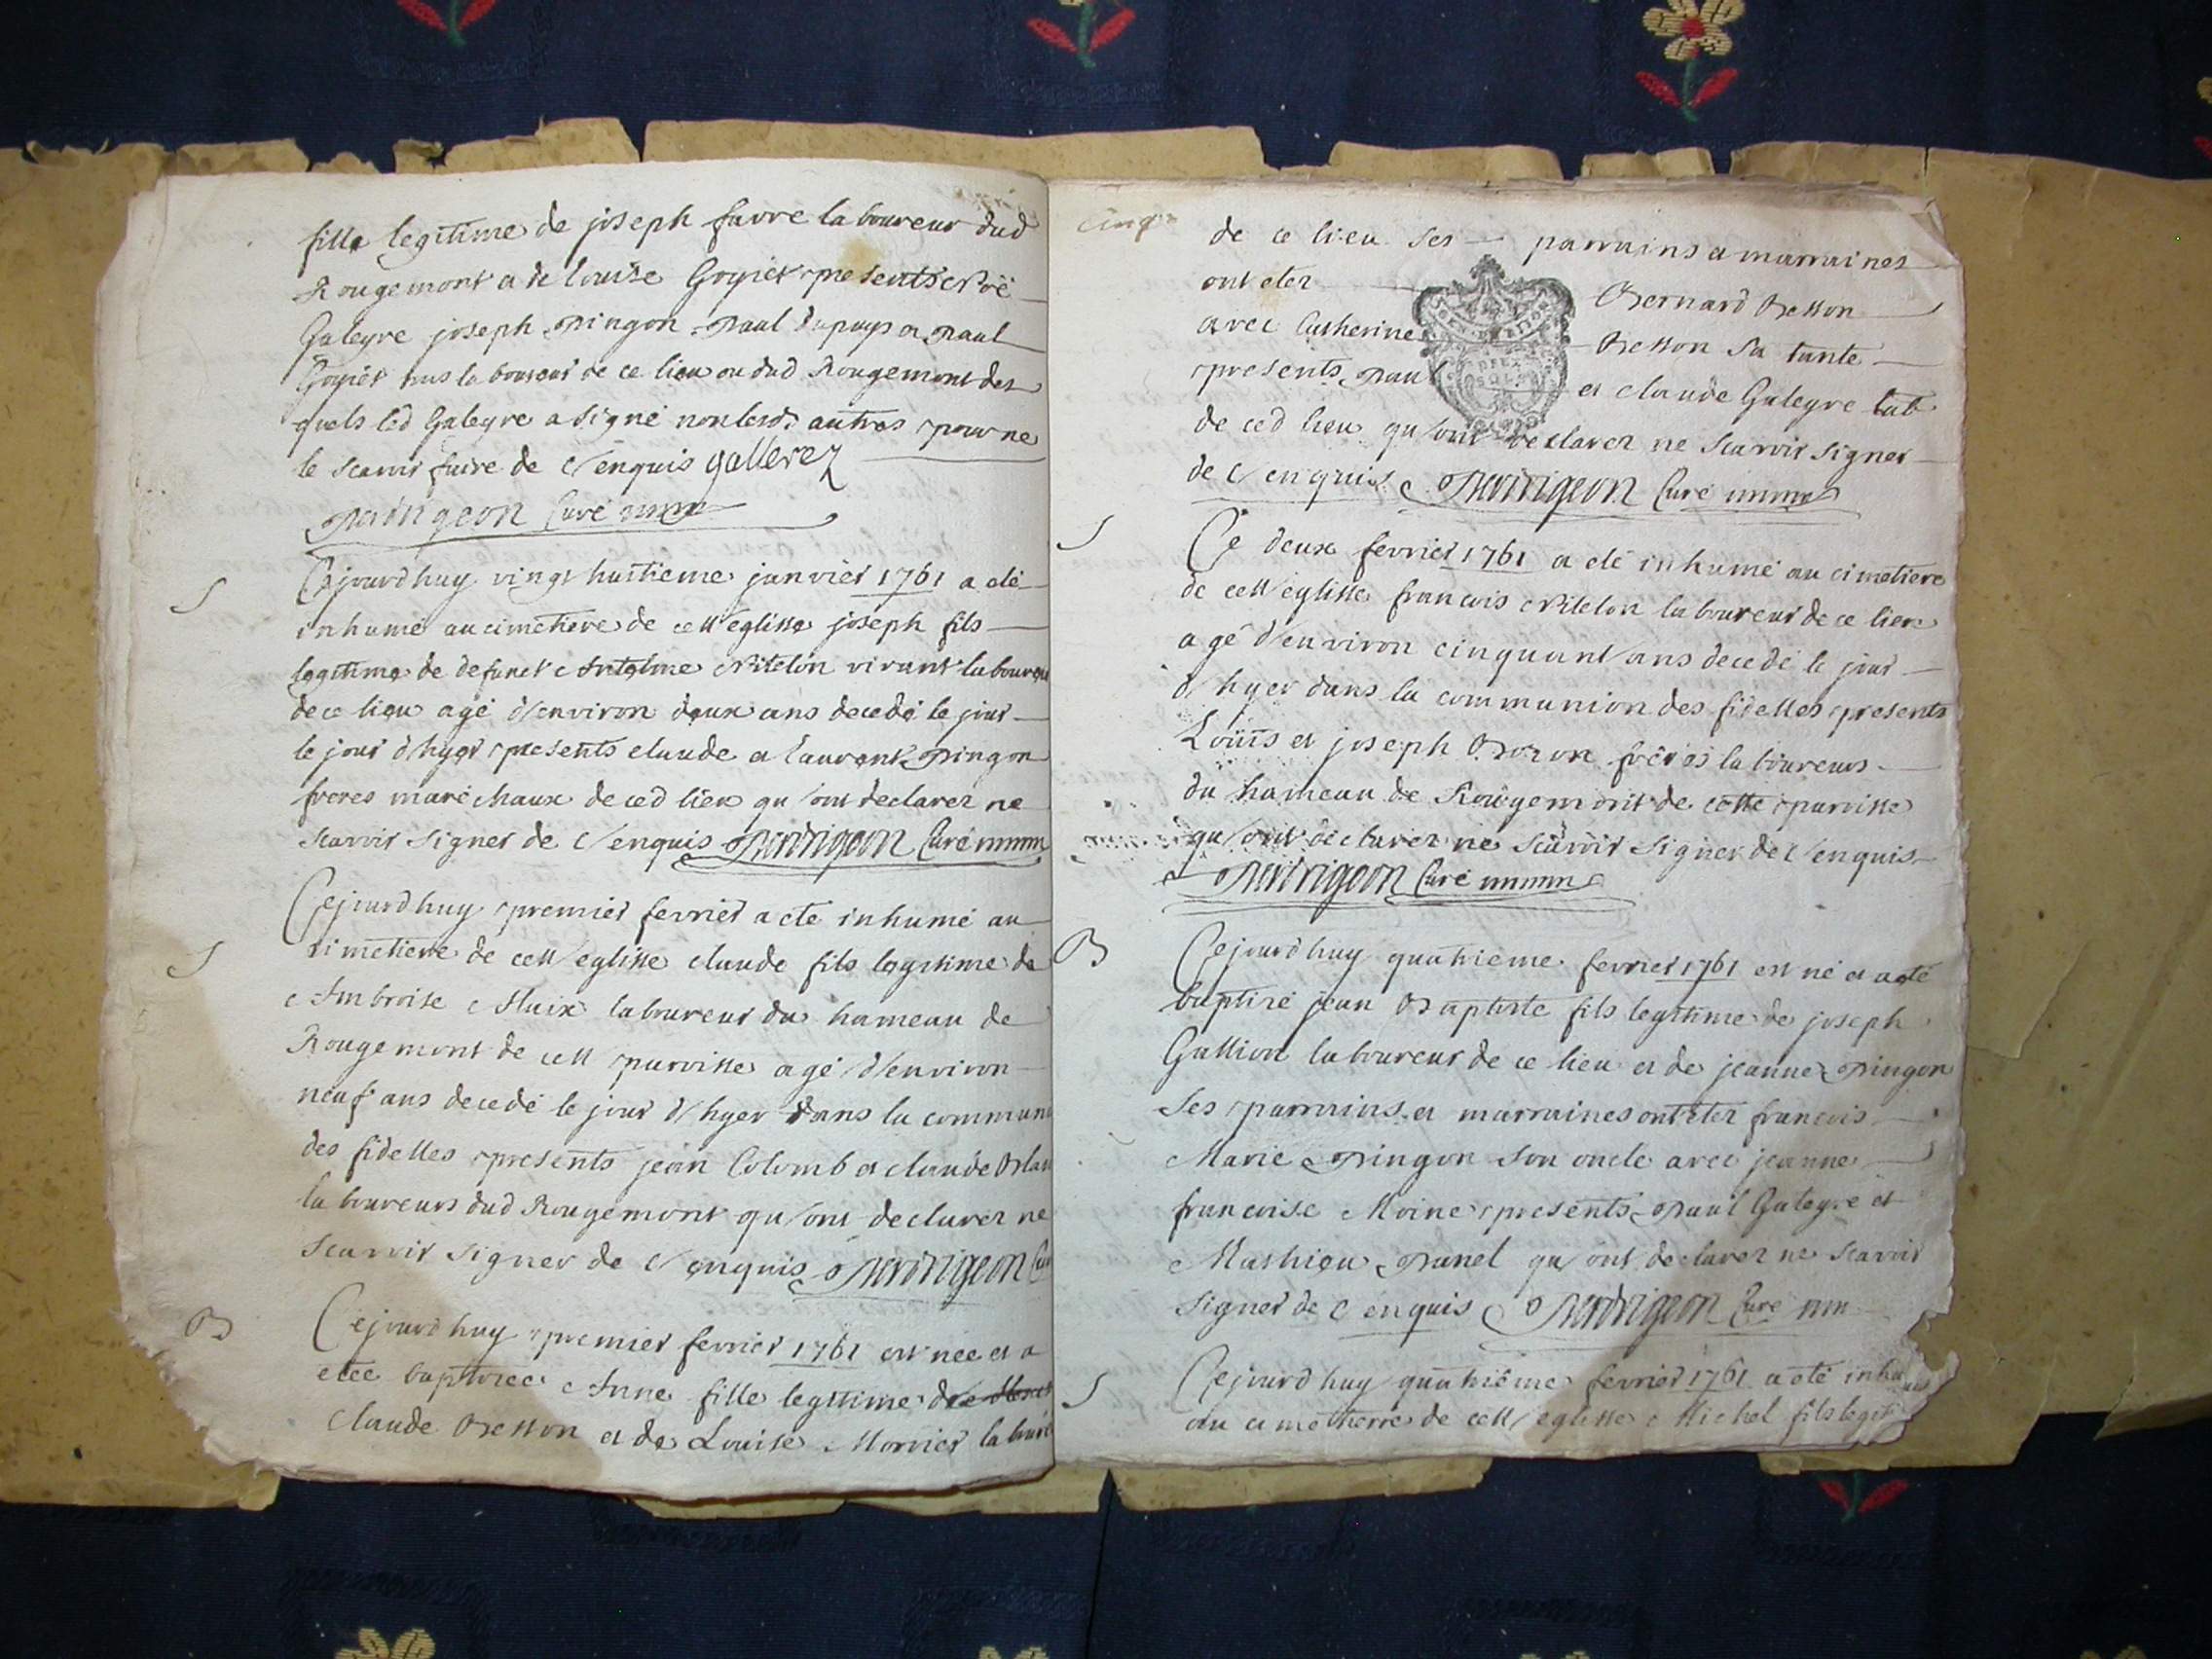 fille legitime de joseph favre laboureur dud
Rougemont a de louise Goyiet presents Noë
Galeyre joseph Pingon Paul dupuys a Paul
Goyiet tus laboureur de ce lieu ou dud Rougemont des
quels led Galeyre a signé non lesd autres pour ne
le scavoir faire de c enquis gallerez
Perdrigeon Curé
S
Cejourdhuy vingt huitieme janvier 1761 a eté
inhumé au cimetiere de cett eglisse joseph fils
legitime de defunct Antelme Vitelon vivant laboureu
de ce lieu agé d'environ deux ans decedé le jour
le jour d'hyer presents claude a laurent Pingon
freres maréchaux de ced lieu qu'ont declarer ne
scavoir signer de c enquis Perdrigeon Curé
S
Cejourdhuy premier fevrier a ete inhumé au
cimetiere de cett eglisse claude fils legitime de
Ambroise laboureur du hameau de
Rougemont de cett paroisse agé d'environ
neuf ans decedé le jour d'hyer dans la commun
des fidelles presents jean Colomb a claude
laboureurs dud Rougemont qu'ont declarer ne
scavoir signer de c enquis Perdrigeon
B
Cejourdhuy premier fevrier 1761 est née et a
etée baptisée Anne fille legitime de
Claude Besson et de Louise Morvier
cinq
de ce lieu ses parrains a marraines
ont eter Bernard Besson
avec Catherine Besson sa tante
presents Paul et claude Galeyre lab
de ced lieu qu'ont declarer ne scavoir signer
de c enquis Perdrigeon Curé
DEUX
SOLS
S
Ce deux fevrier 1761 a eté inhumé au cimetiere
de cett eglisse francois Vitelon laboureur de ce lieu
agé d'environ cinquant ans decedé le jour
d'hyer dans la communion des fidelles presents
Loüis et joseph Bozon freres laboureurs
du hameau de Rougemont de cette paroisse
qu'ont declarer ne scavoir signer de c enquis
Perdrigeon Curé
B
Cejourdhuy quatrieme fevrier 1761 est né et a eté
baptisé jean Baptiste fils legitime de joseph
Gallion laboureur de ce lieu et de jeanne Pingon
ses parrains et marraines ont eter francois
Marie Pingon son oncle avec jeanne
francoise Moine presents Paul Galeyre et
Mathieu Panel qu'ont declarer ne scavoir
signer de c enquis Perdrigeon Curé
S
Cejourdhuy quatrieme fevrier 1761 a eté inhu
au cimetierre de cett eglisse Michel fils legit